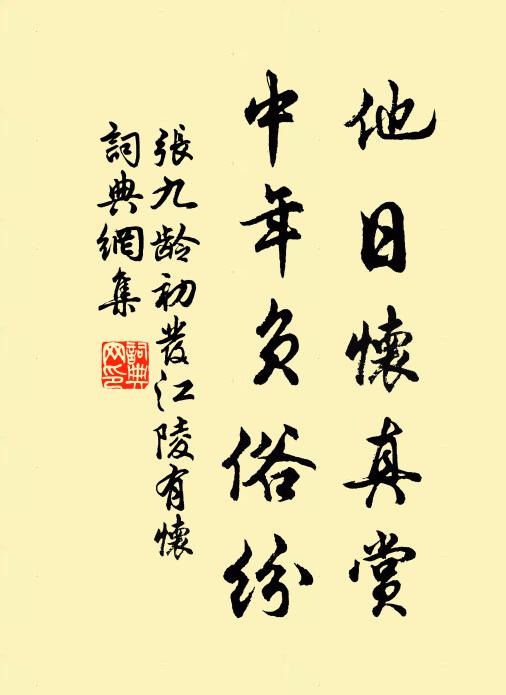 他日懷真賞
中年負俗紛
張九齡初發江陵有懷
詞典網集
詞典網印